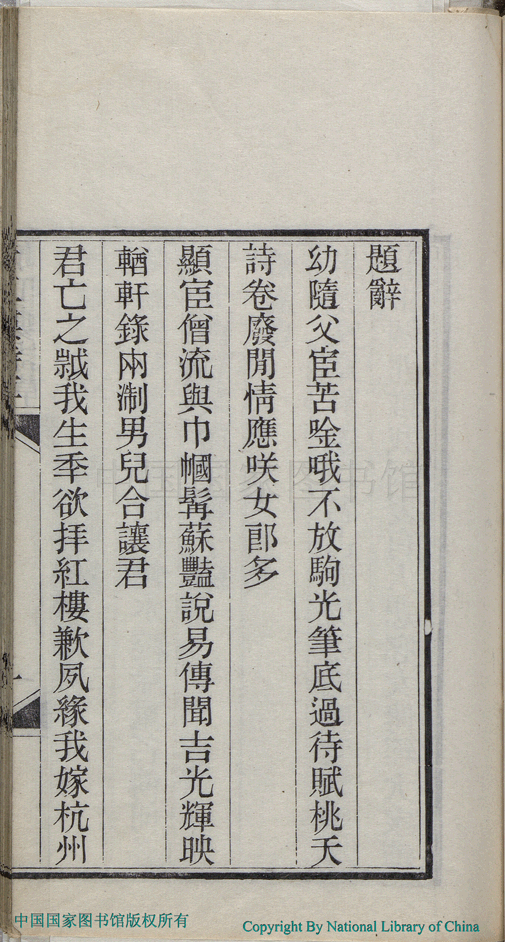 題辭
幼隨父宦苦唫哦不放駒光筆底過待賦桃夭
詩卷廢閒情應咲女郎多
顯宦僧流與巾幗髯蘇豔說易傳聞吉光輝映
輶軒錄兩淛男兒合讓君
君亡之歲我生秊欲拝紅樓歉夙緣我嫁杭州
中国国家图书馆
中国国家图书馆版权所有
Copyright By National Library of China